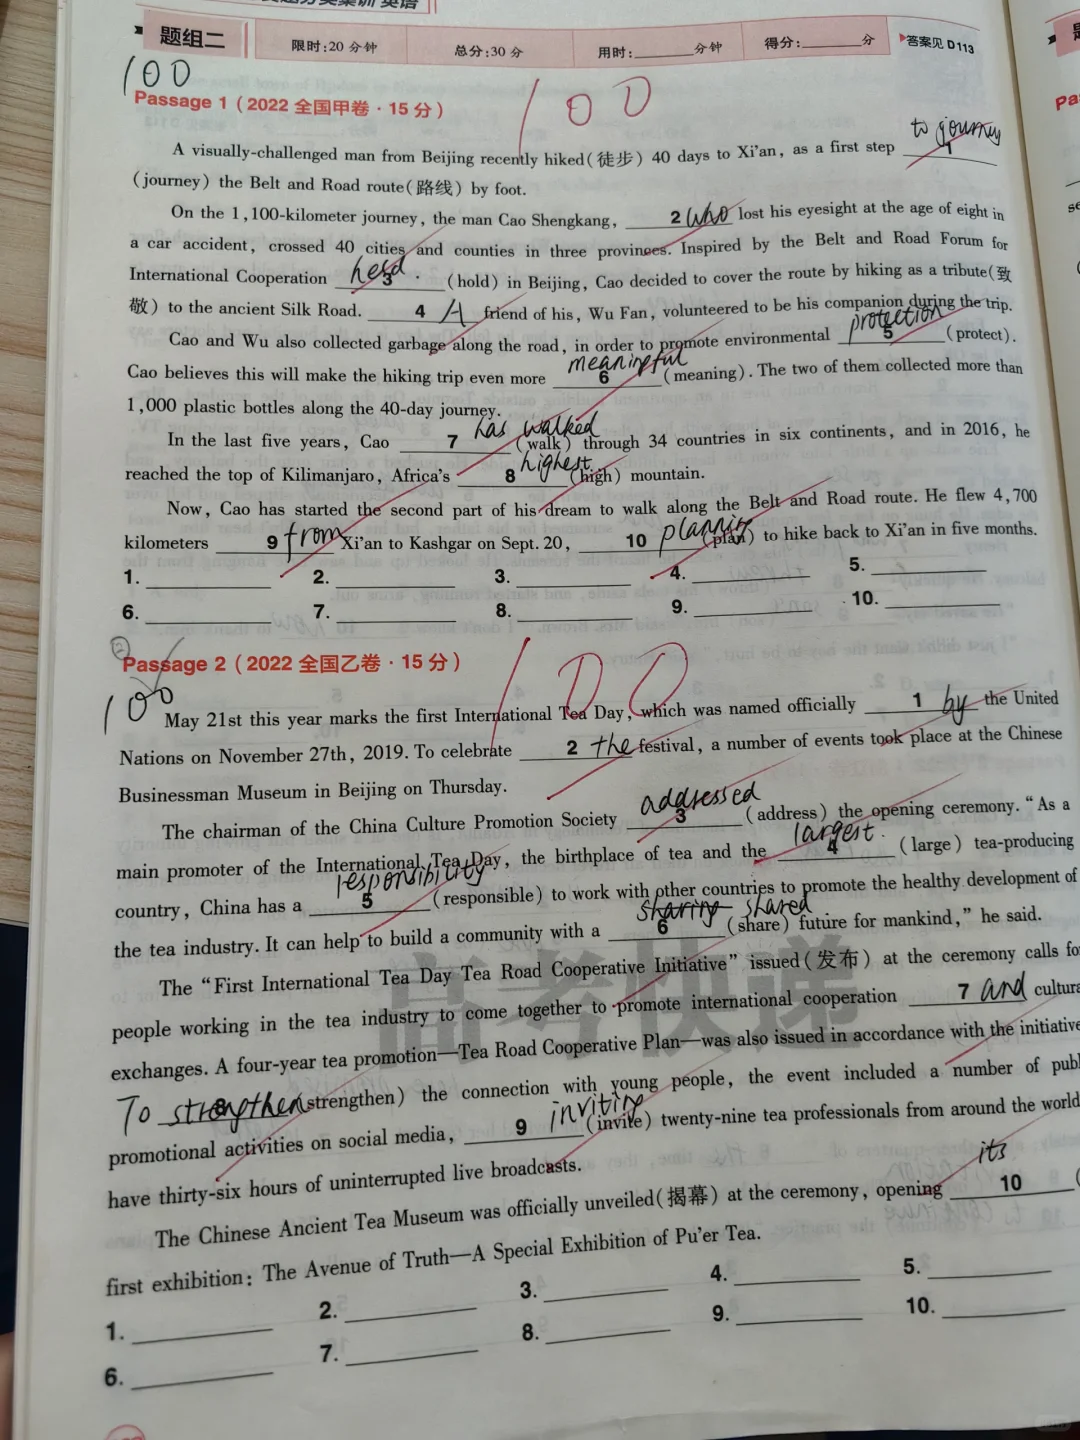 题组二 限时:20 分钟 总分:30 分 用时:______分钟 得分:______分 ▶答案见 D113
100
100
Passage 1 (2022 全国甲卷·15 分)
A visually-challenged man from Beijing recently hiked(徒步) 40 days to Xi'an, as a first step 1 to journey
(journey) the Belt and Road route(路线) by foot.
On the 1,100-kilometer journey, the man Cao Shengkang, 2 who lost his eyesight at the age of eight in
a car accident, crossed 40 cities and counties in three provinces. Inspired by the Belt and Road Forum for
International Cooperation 3 held (hold) in Beijing, Cao decided to cover the route by hiking as a tribute(致
敬) to the ancient Silk Road. 4 A friend of his, Wu Fan, volunteered to be his companion during the trip.
Cao and Wu also collected garbage along the road, in order to promote environmental 5 protection (protect).
Cao believes this will make the hiking trip even more 6 meaningful (meaning). The two of them collected more than
1,000 plastic bottles along the 40-day journey.
In the last five years, Cao 7 has walked (walk) through 34 countries in six continents, and in 2016, he
reached the top of Kilimanjaro, Africa's 8 highest (high) mountain.
Now, Cao has started the second part of his dream to walk along the Belt and Road route. He flew 4,700
kilometers 9 from Xi'an to Kashgar on Sept. 20, 10 planning (plan) to hike back to Xi'an in five months.
1. 2. 3. 4. 5.
6. 7. 8. 9. 10.
②
Passage 2 (2022 全国乙卷·15 分)
100
100
May 21st this year marks the first International Tea Day, which was named officially 1 by the United
Nations on November 27th, 2019. To celebrate 2 the festival, a number of events took place at the Chinese
Businessman Museum in Beijing on Thursday.
The chairman of the China Culture Promotion Society 3 addressed (address) the opening ceremony. "As a
main promoter of the International Tea Day, the birthplace of tea and the 4 largest (large) tea-producing
country, China has a 5 responsibility (responsible) to work with other countries to promote the healthy development of
the tea industry. It can help to build a community with a 6 sharing shared (share) future for mankind," he said.
The "First International Tea Day Tea Road Cooperative Initiative" issued(发布) at the ceremony calls for
people working in the tea industry to come together to promote international cooperation 7 and cultura
exchanges. A four-year tea promotion—Tea Road Cooperative Plan—was also issued in accordance with the initiative
To strengthen 8 (strengthen) the connection with young people, the event included a number of publ
promotional activities on social media, 9 inviting (invite) twenty-nine tea professionals from around the world
have thirty-six hours of uninterrupted live broadcasts.
The Chinese Ancient Tea Museum was officially unveiled(揭幕) at the ceremony, opening 10 its (
first exhibition: The Avenue of Truth—A Special Exhibition of Pu'er Tea.
1. 2. 3. 4. 5.
6. 7. 8. 9. 10.
高考快递